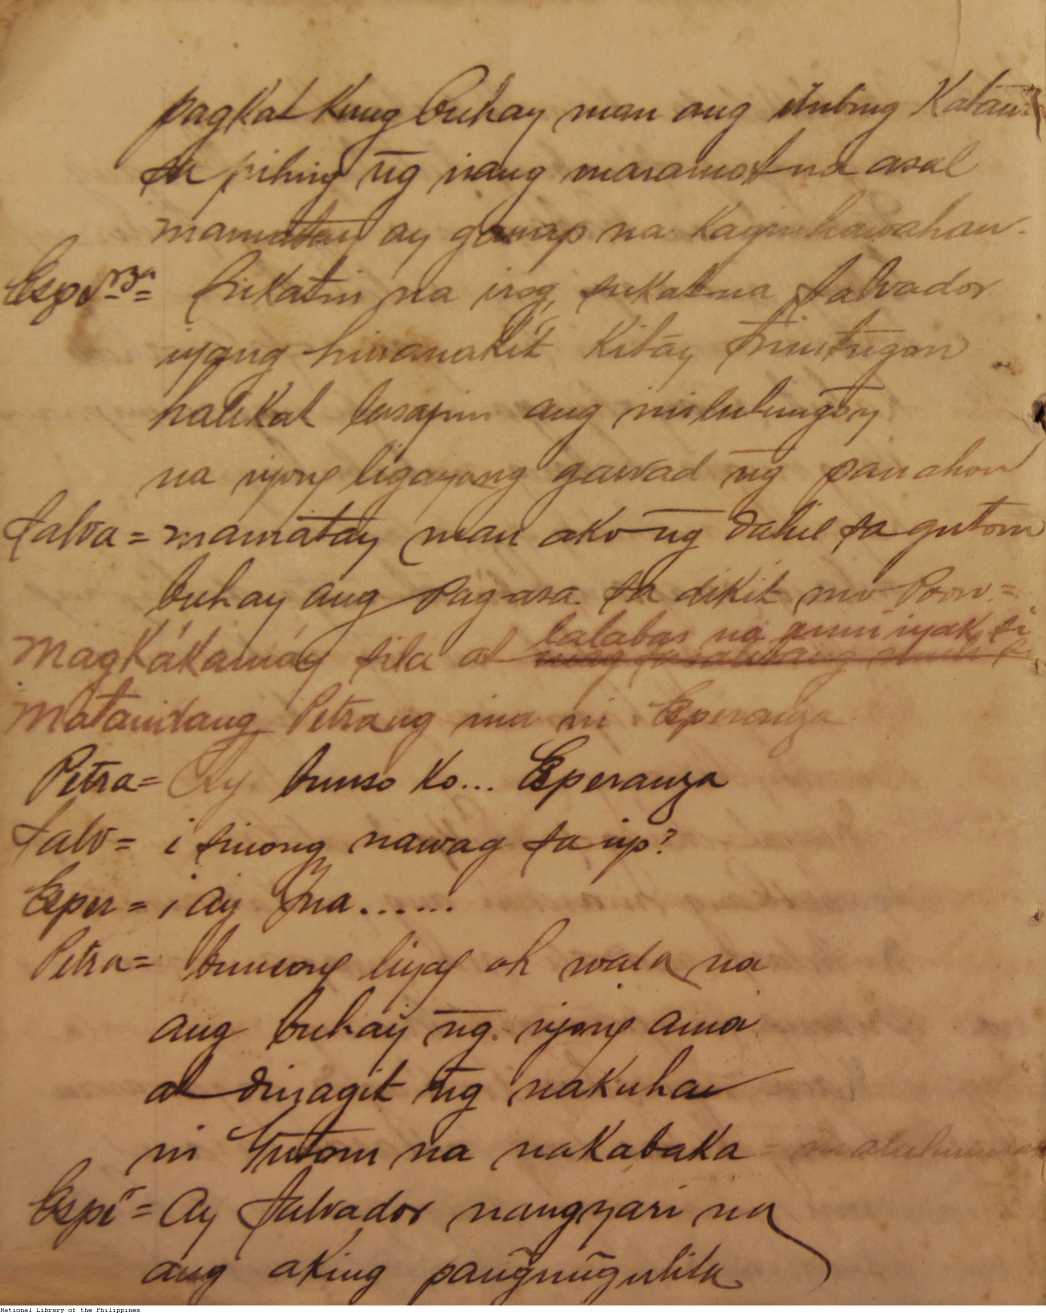 pagkat kung buhay man ang ituting Katau
sa piling ng isang masamot na asal
mamatay ay ganap na Kaginhawahan.
Espᵉʳᶻᵃ= Sukatin na irog, sukat na Salvador
iyang hinanakit Kitay tinutugon
halikat lasapin ang
na iyong ligayang gawad ng panahon
Salva= mamatay man ako ng dahil sa gutom
buhay ang pag-asa sa dikit mo Poon=
lalabas na umiiyak si
MagKákamáy sila at
Matandang Petrang ina ni Esperanza
Petra= Ay. bunso Ko... Esperanza
Salv= ¿sinong nawag sa iyo?
Esper= ¡ay Ina......
Petra= bunsong liyag oh wala na
ang buhay ng. iyong ama
at dinagit ng nakuha
ni Gutom na nakabaka=
Espᵉ= Ay Salvador nangyari na
ang aking pangungulila
National Library of the Philippines